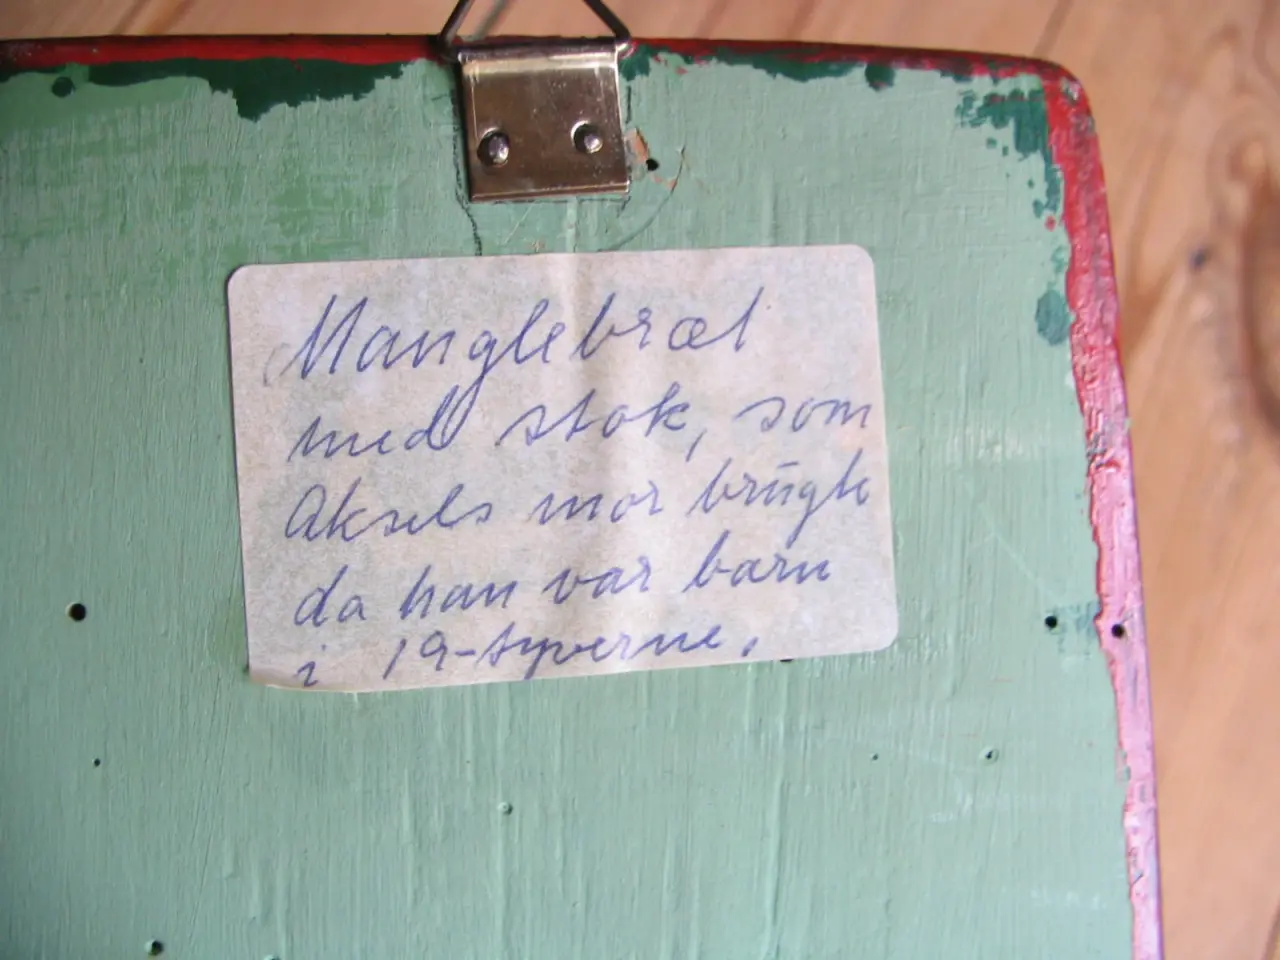 Manglebræt
med stok, som
Aksels mor brugte
da han var barn
i 19-tyverne.